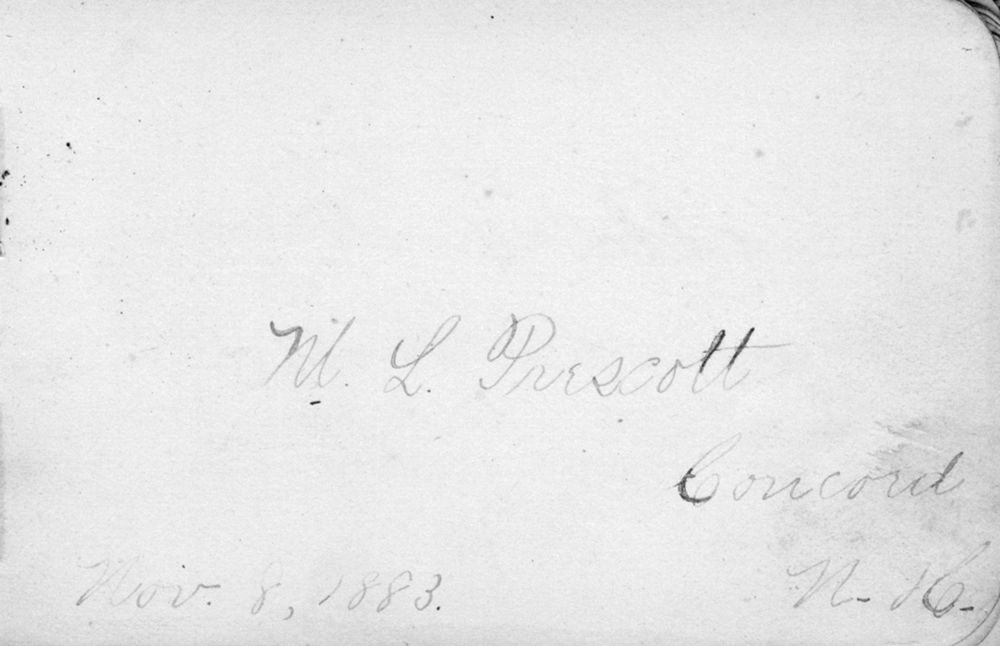 M. L. Prescott
Concord
Nov. 8, 1883.
N. H.